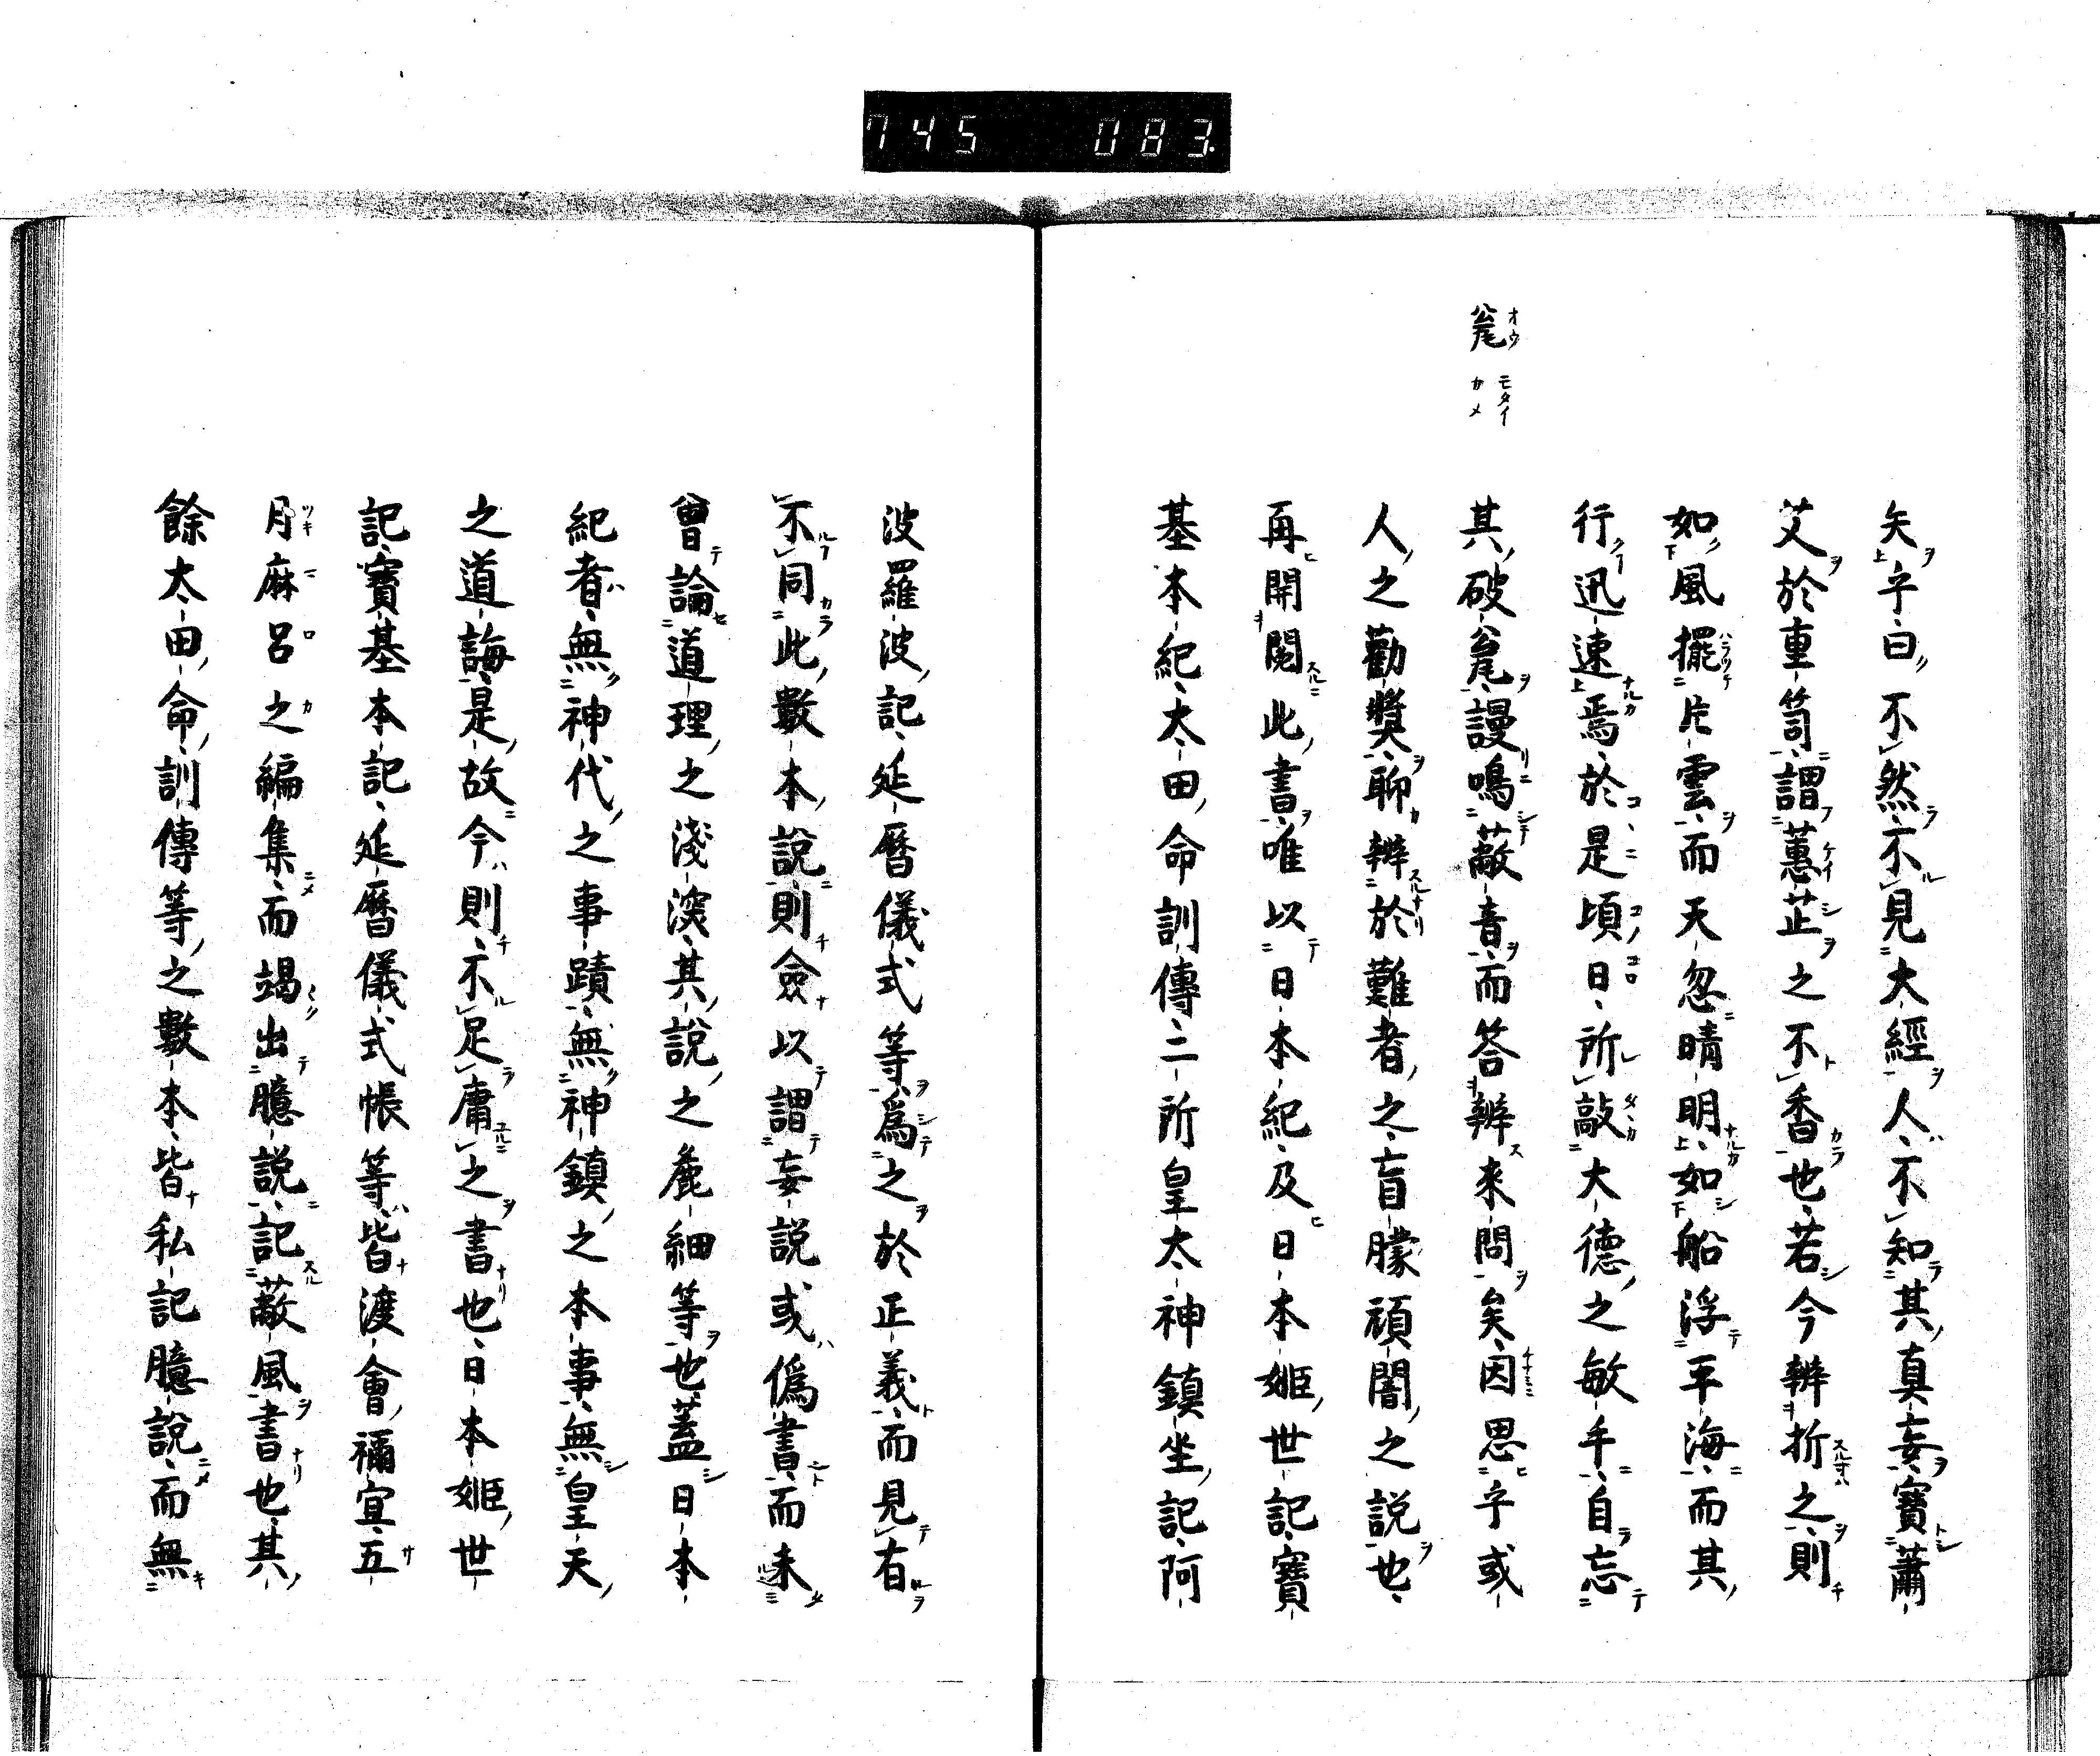 745 083.
瓮 オウ モタイ カメ
矣予曰不然不見大經人不知其真妄寶蕭
艾於重笥謂蕙芷之不香也若今辨折之則
如風擺片雲而天忽晴明如船浮平海而其
行迅速焉於是頃日所敲大德之敏手自忘
其破瓮謾鳴蔽音而答辨來問矣因思予或
人之勸獎聊辨於難者之盲朦頑闇之説也
再開閱此書唯以日本紀及日本姫世記寶
基本紀太田命訓傳二所皇太神鎮坐記阿
波羅波記延暦儀式等爲之於正義而見有
不同此數本説則僉以謂妄説或偽書而未
曾論道理之淺深其説之麁細等也蓋日本
紀者無神代之事蹟無神鎮之本事無皇天
之道誨是故今則不足庸之書也日本姫世
記寶基本記延暦儀式帳等皆渡會禰宜五
月麻呂之編集而竭出臆説記蔽風書也其
餘太田命訓傳等之數本皆私記臆説而無